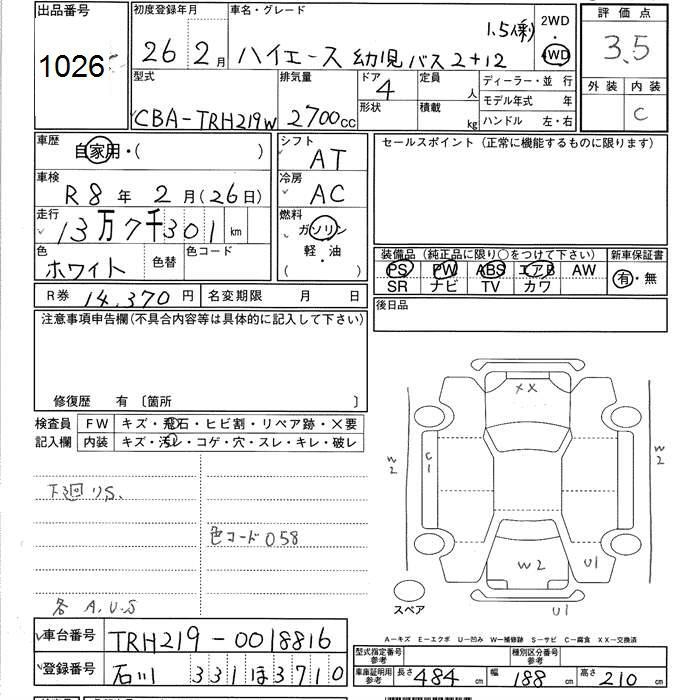 出品番号
1026
初度登録年月
26 2月
車名・グレード
ハイエース 幼児バス 2+12
2WD
・
4WD
評価点
3.5
外装 内装
C
型式
CBA-TRH219W
排気量
2700cc
ドア
4
形状
定員
人
積載
kg
ディーラー・並 行
モデル年式 年
ハンドル 左・右
車歴
自家用・( )
シフト
AT
セールスポイント (正常に機能するものに限ります)
車検
R8年 2月(26日)
冷房
AC
走行
13万7千301km
燃料
ガソリン
軽・油
( )
色
ホワイト
色替
色コード
装備品 (純正品に限り○をつけて下さい)
PS PW ABS エアB AW
SR ナビ TV カワ
新車保証書
有・無
R券 14,370円
名変期限 月 日
後日品
注意事項申告欄(不具合内容等は具体的に記入して下さい)
修復歴 有〔箇所 〕
検査員
記入欄
FW キズ・飛石・ヒビ割・リペア跡・×要
内装 キズ・汚レ・コゲ・穴・スレ・キレ・破レ
下廻りS.
色コード058
各 A.U.S
XX
W2
C1
W2
W2
U1
U1
スペア
A−キズ E−エクボ U−凹み W−補修跡 S−サビ C−腐食 XX−交換済
車台番号
TRH219-0018816
登録番号
石川 331 ほ 3710
型式指定番号
参考
種別区分番号
参考
車庫証明用
参考
長さ 484 cm
幅 188 cm
高さ 210 cm